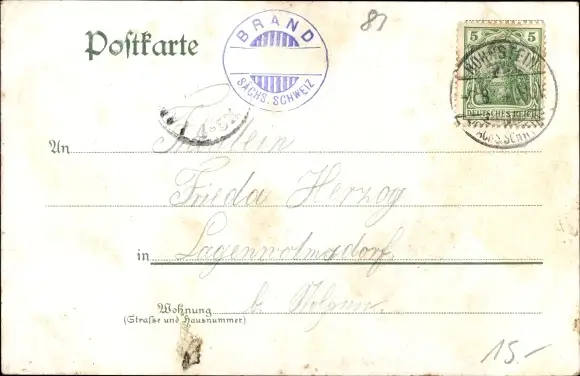 81
Postkarte
BRAND
SÄCHS. SCHWEIZ
5 5
DEUTSCHES REICH
HOHNSTEIN
An Fräulein
Frieda Herzog
in Langenwolmsdorf
b. Stolpen.
Wohnung
(Straße und Hausnummer)
15.-